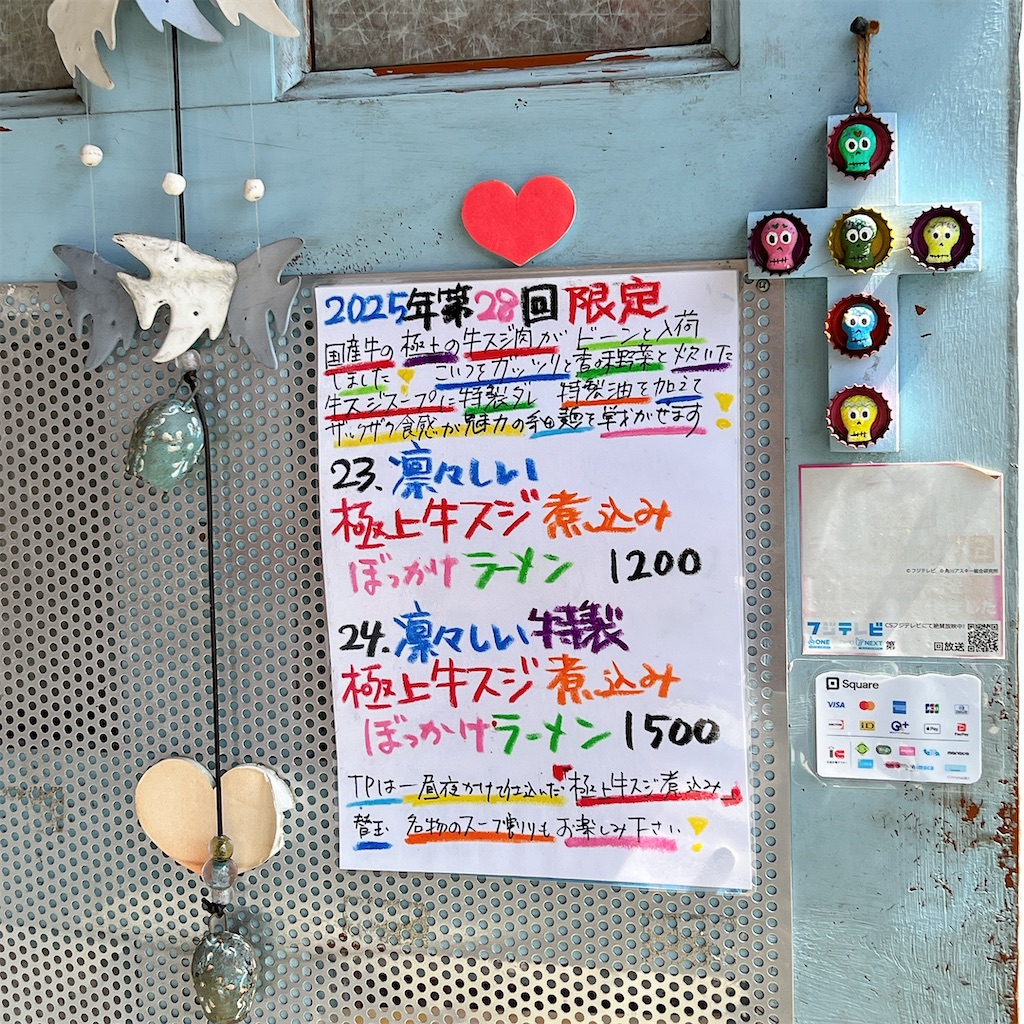 2025年第28回限定
国産牛の極上の牛スジ肉がドーンと入荷
しました! こいつをガッツリと香味野菜と炊いた
牛スジスープに特製ダレ 特製油を加えて
ザックザク食感が魅力の細麺を学おがせます!
23.凛々しい
極上牛スジ煮込み
ぼっかけラーメン 1200
24.凛々しい特製
極上牛スジ煮込み
ぼっかけラーメン 1500
TPは一昼夜かけて仕込んだ"極上牛スジ煮込み"
替玉 名物のスープ割りもお楽しみ下さい!
©フジテレビ ©角川アスキー総合研究所
フジテレビ CSフジテレビにて絶賛放映中!
ONE NEXT 第 回放送
Square
VISA
JCB
iD QUICPay+ Apple Pay PayPay
manaca